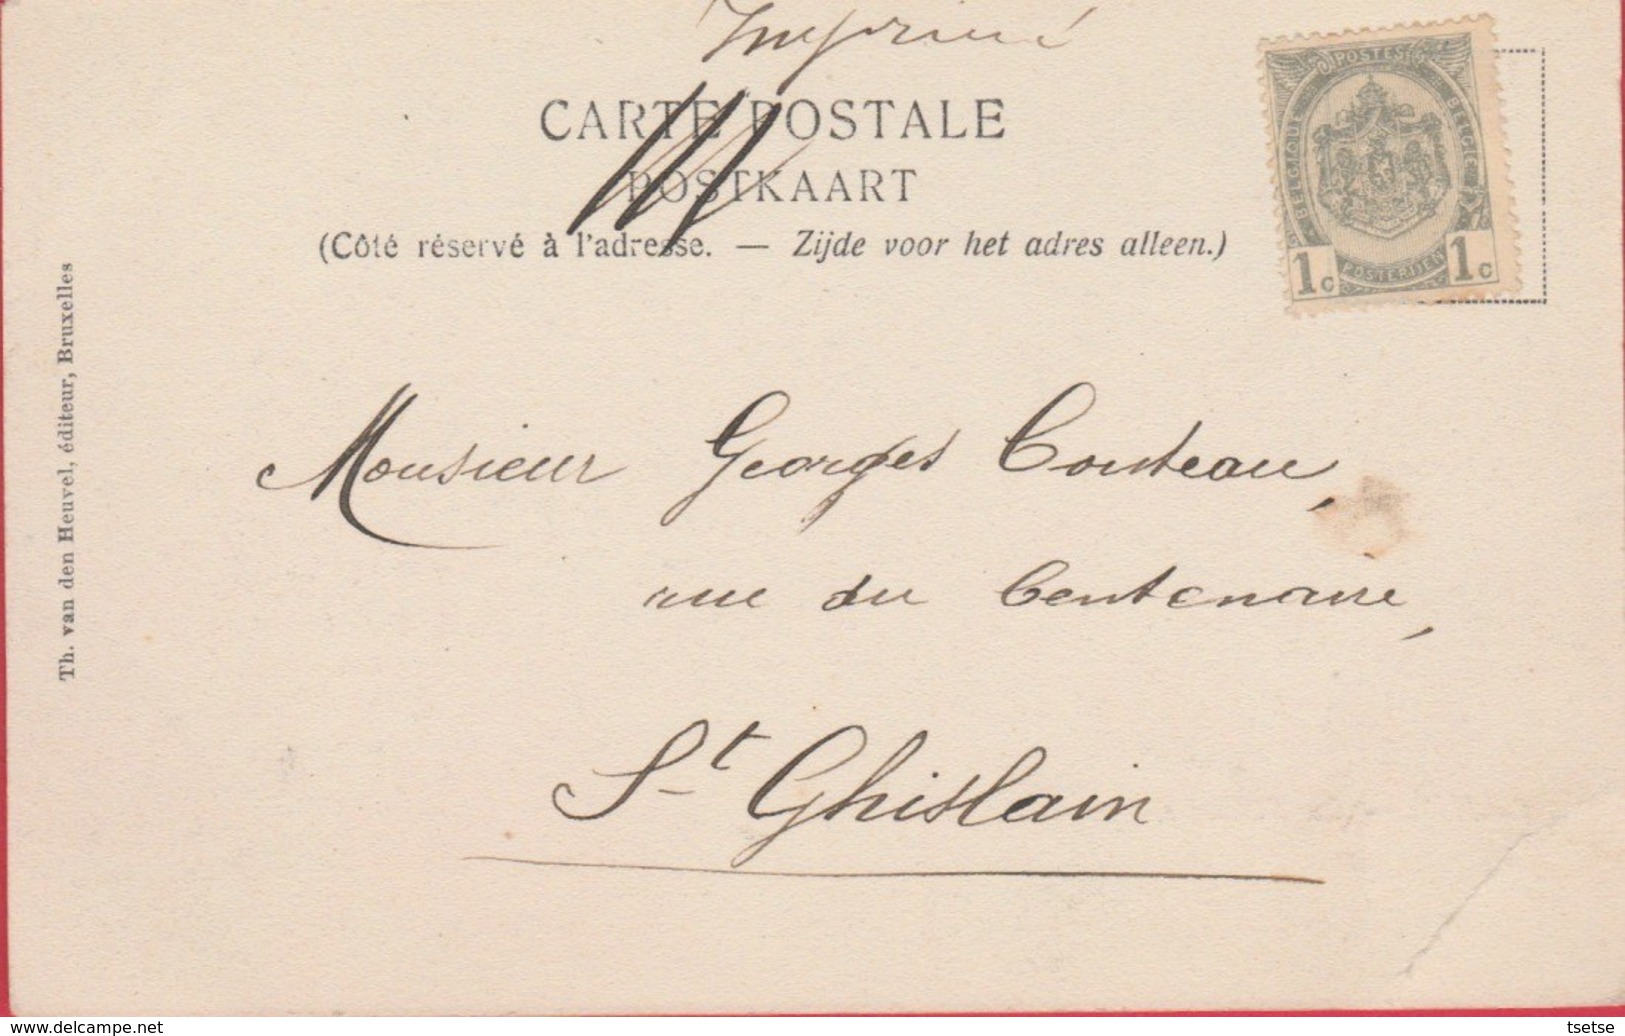 Imprimé
CARTE POSTALE
POSTKAART
(Côté réservé à l'adresse. — Zijde voor het adres alleen.)
POSTES
BELGIQUE
BELGIE
1c POSTERIJEN 1c
Th. van den Heuvel, éditeur, Bruxelles
Monsieur Georges Couteau,
rue du Centenaire,
St Ghislain
www.delcampe.net
tsetse